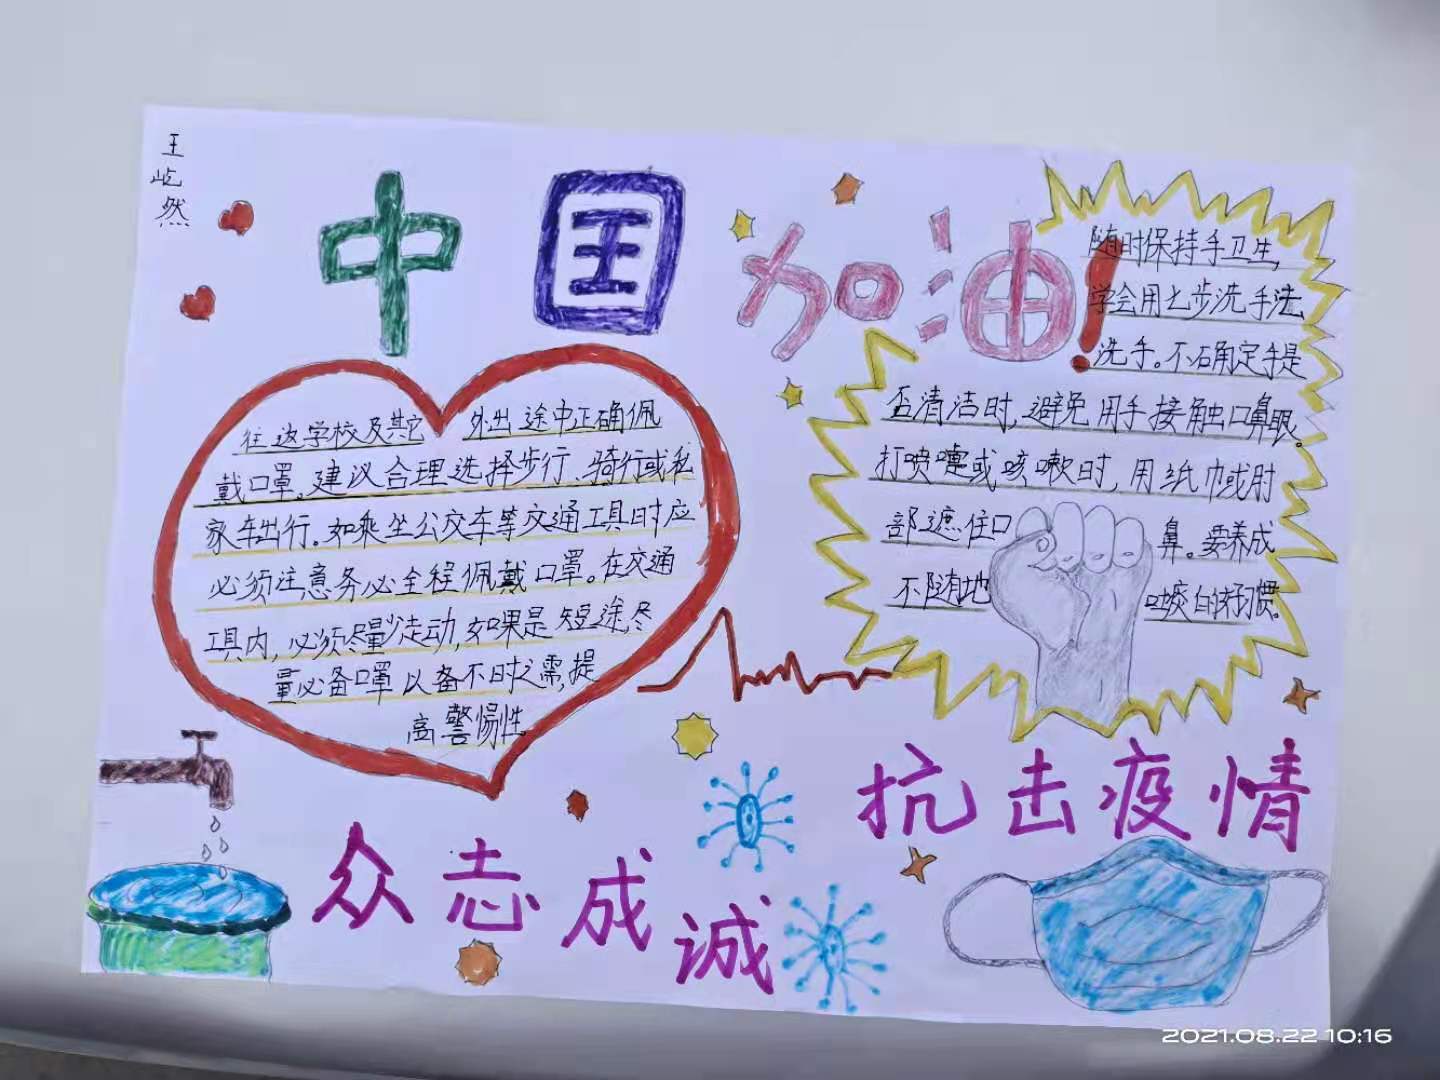 王屹然
中国加油!
往返学校及其它 外出途中正确佩
戴口罩。建议合理选择步行、骑行或私
家车出行。如乘坐公交车等交通工具时应
必须注意务必全程佩戴口罩。在交通
工具内,必须尽量少走动,如果是短途,尽
量必备口罩以备不时之需,提
高警惕性
随时保持手卫生,
学会用七步洗手法
洗手。不确定手是
否清洁时,避免用手接触口鼻眼。
打喷嚏或咳嗽时,用纸巾或肘
部遮住口鼻。要养成
不随地吐痰的好习惯。
抗击疫情
众志成诚
2021.08.22 10:16